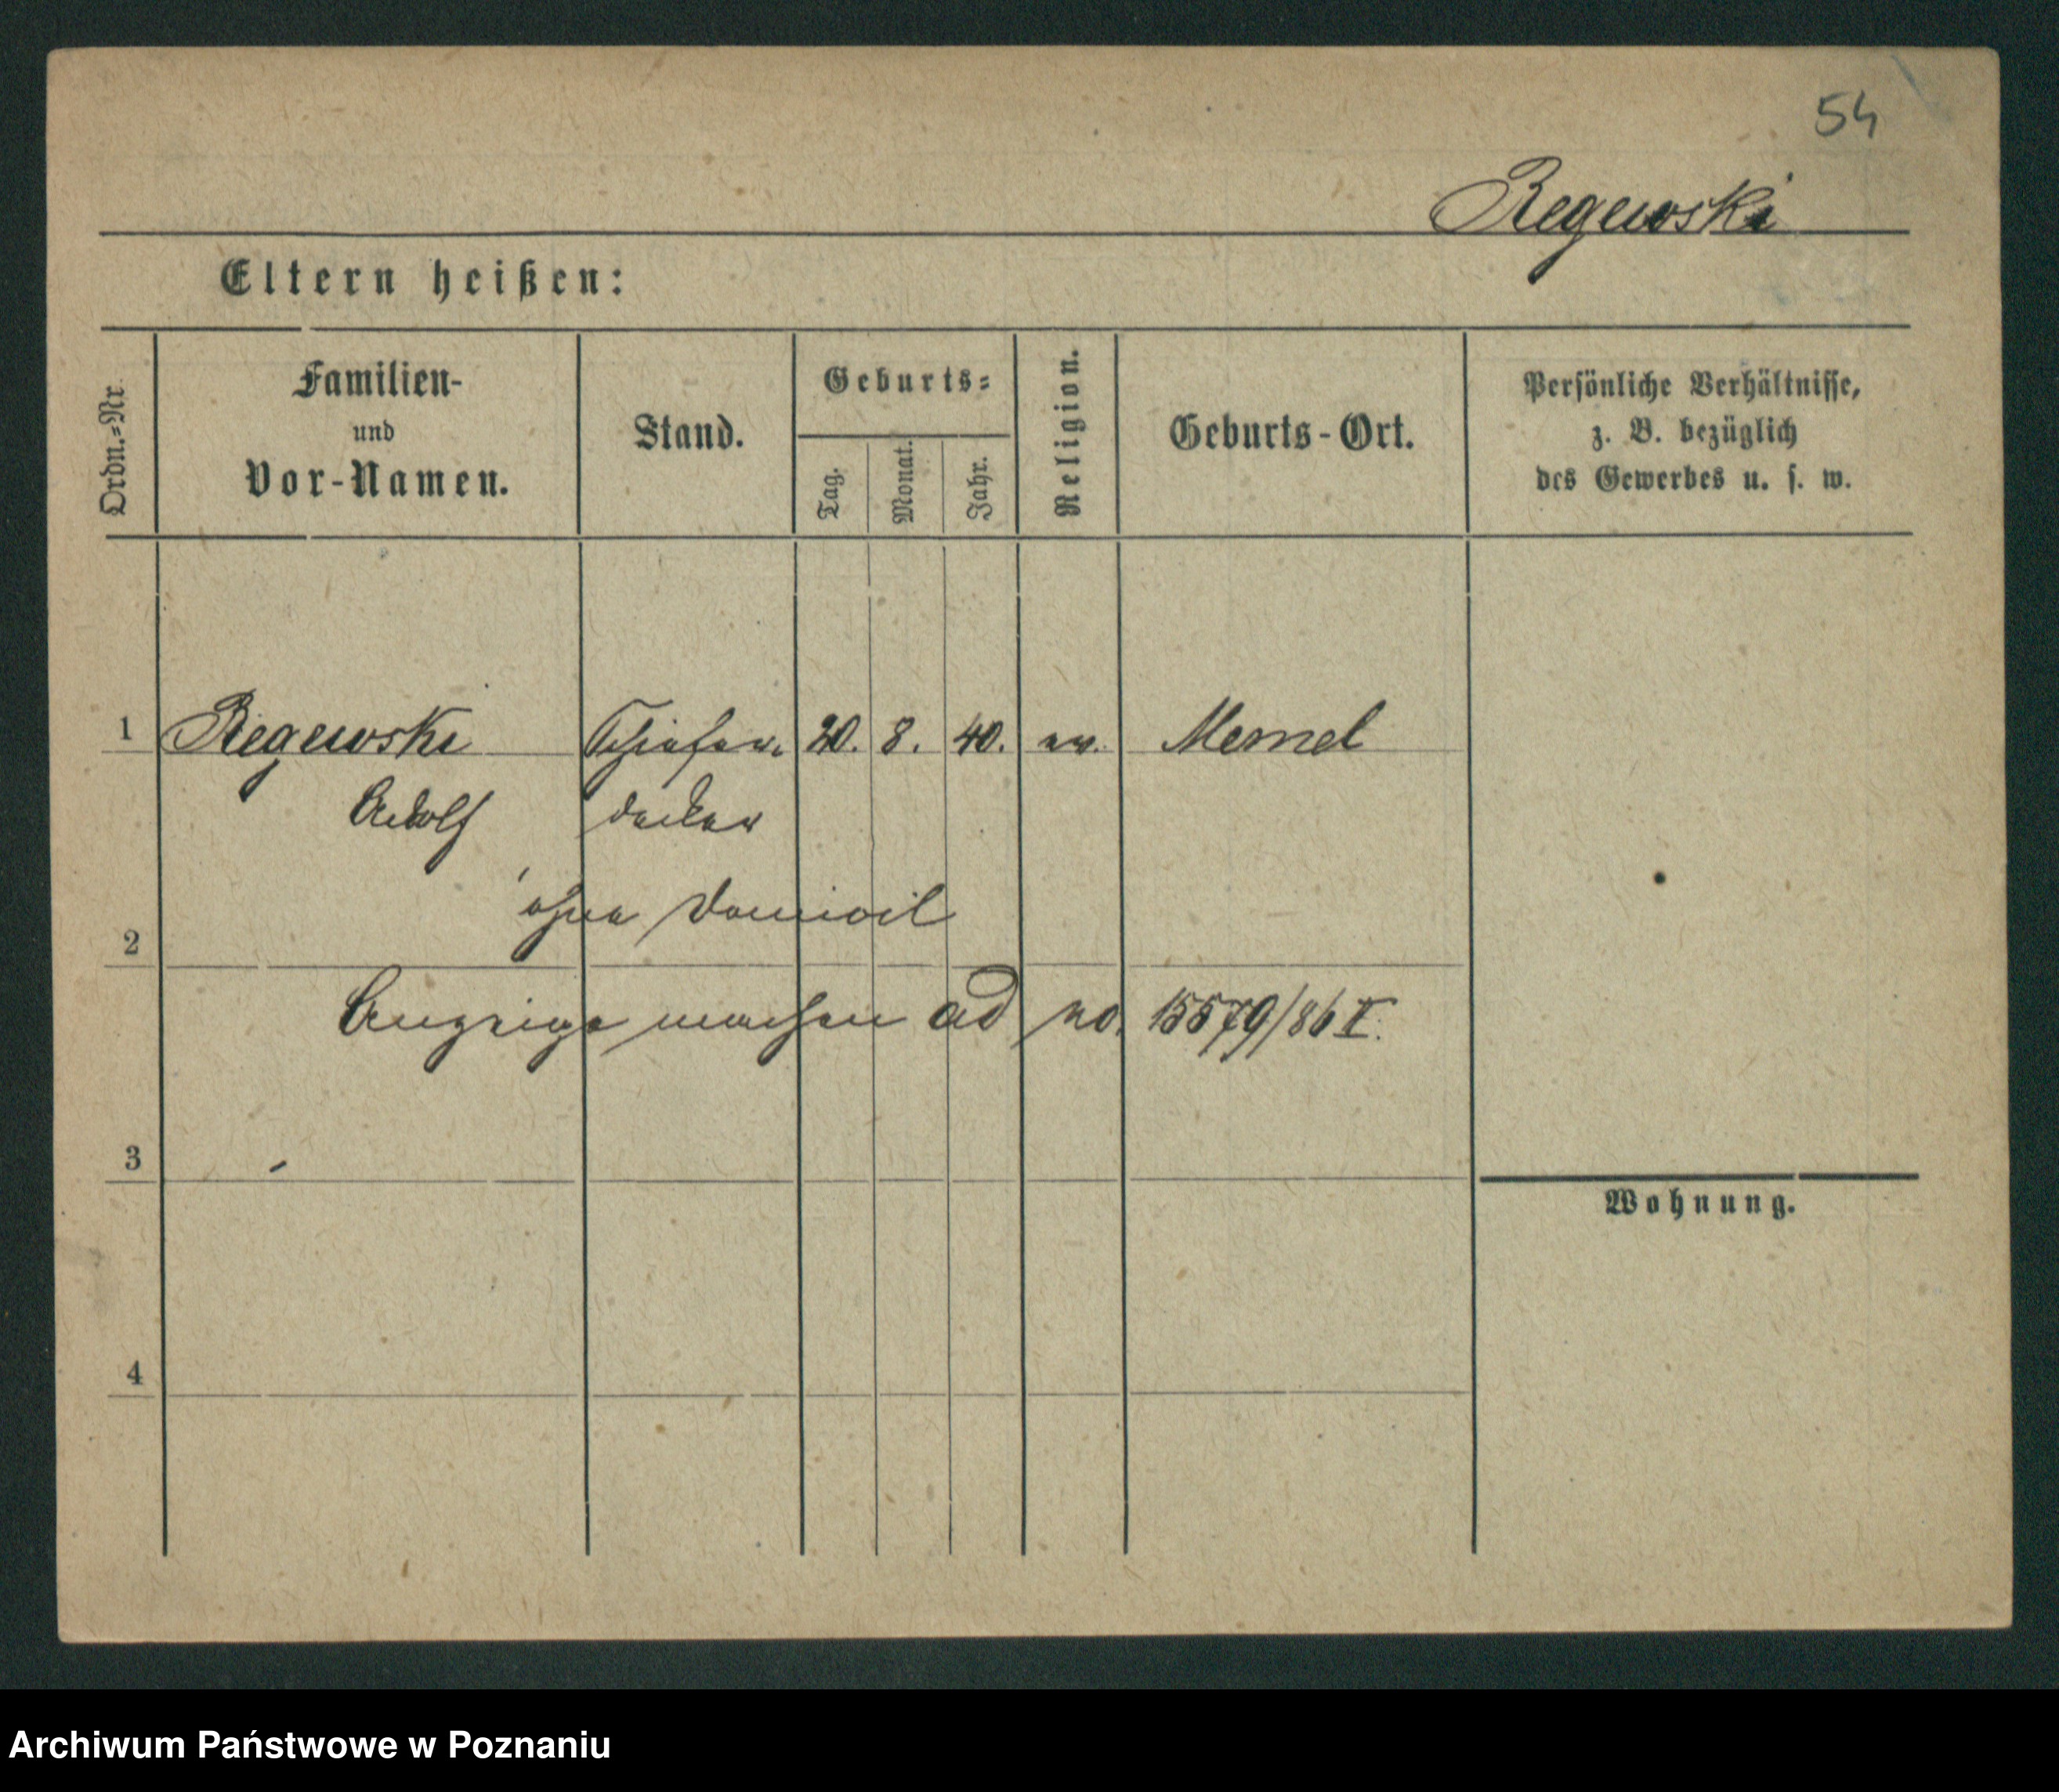 54
Regewski
Eltern heißen:
Ordn.-Nr.
Familien-
und
Vor-Namen.
Stand.
Geburts-
Tag.
Monat.
Jahr.
Religion.
Geburts-Ort.
Persönliche Verhältnisse,
z. B. bezüglich
des Gewerbes u. s. w.
1 Regewski Schiefer- 20. 8. 40. ev. Memel
Adolf decker
ohne Domicil
2
Anzeige machen ad no. 15579/86 I.
3
Wohnung.
4
Archiwum Państwowe w Poznaniu